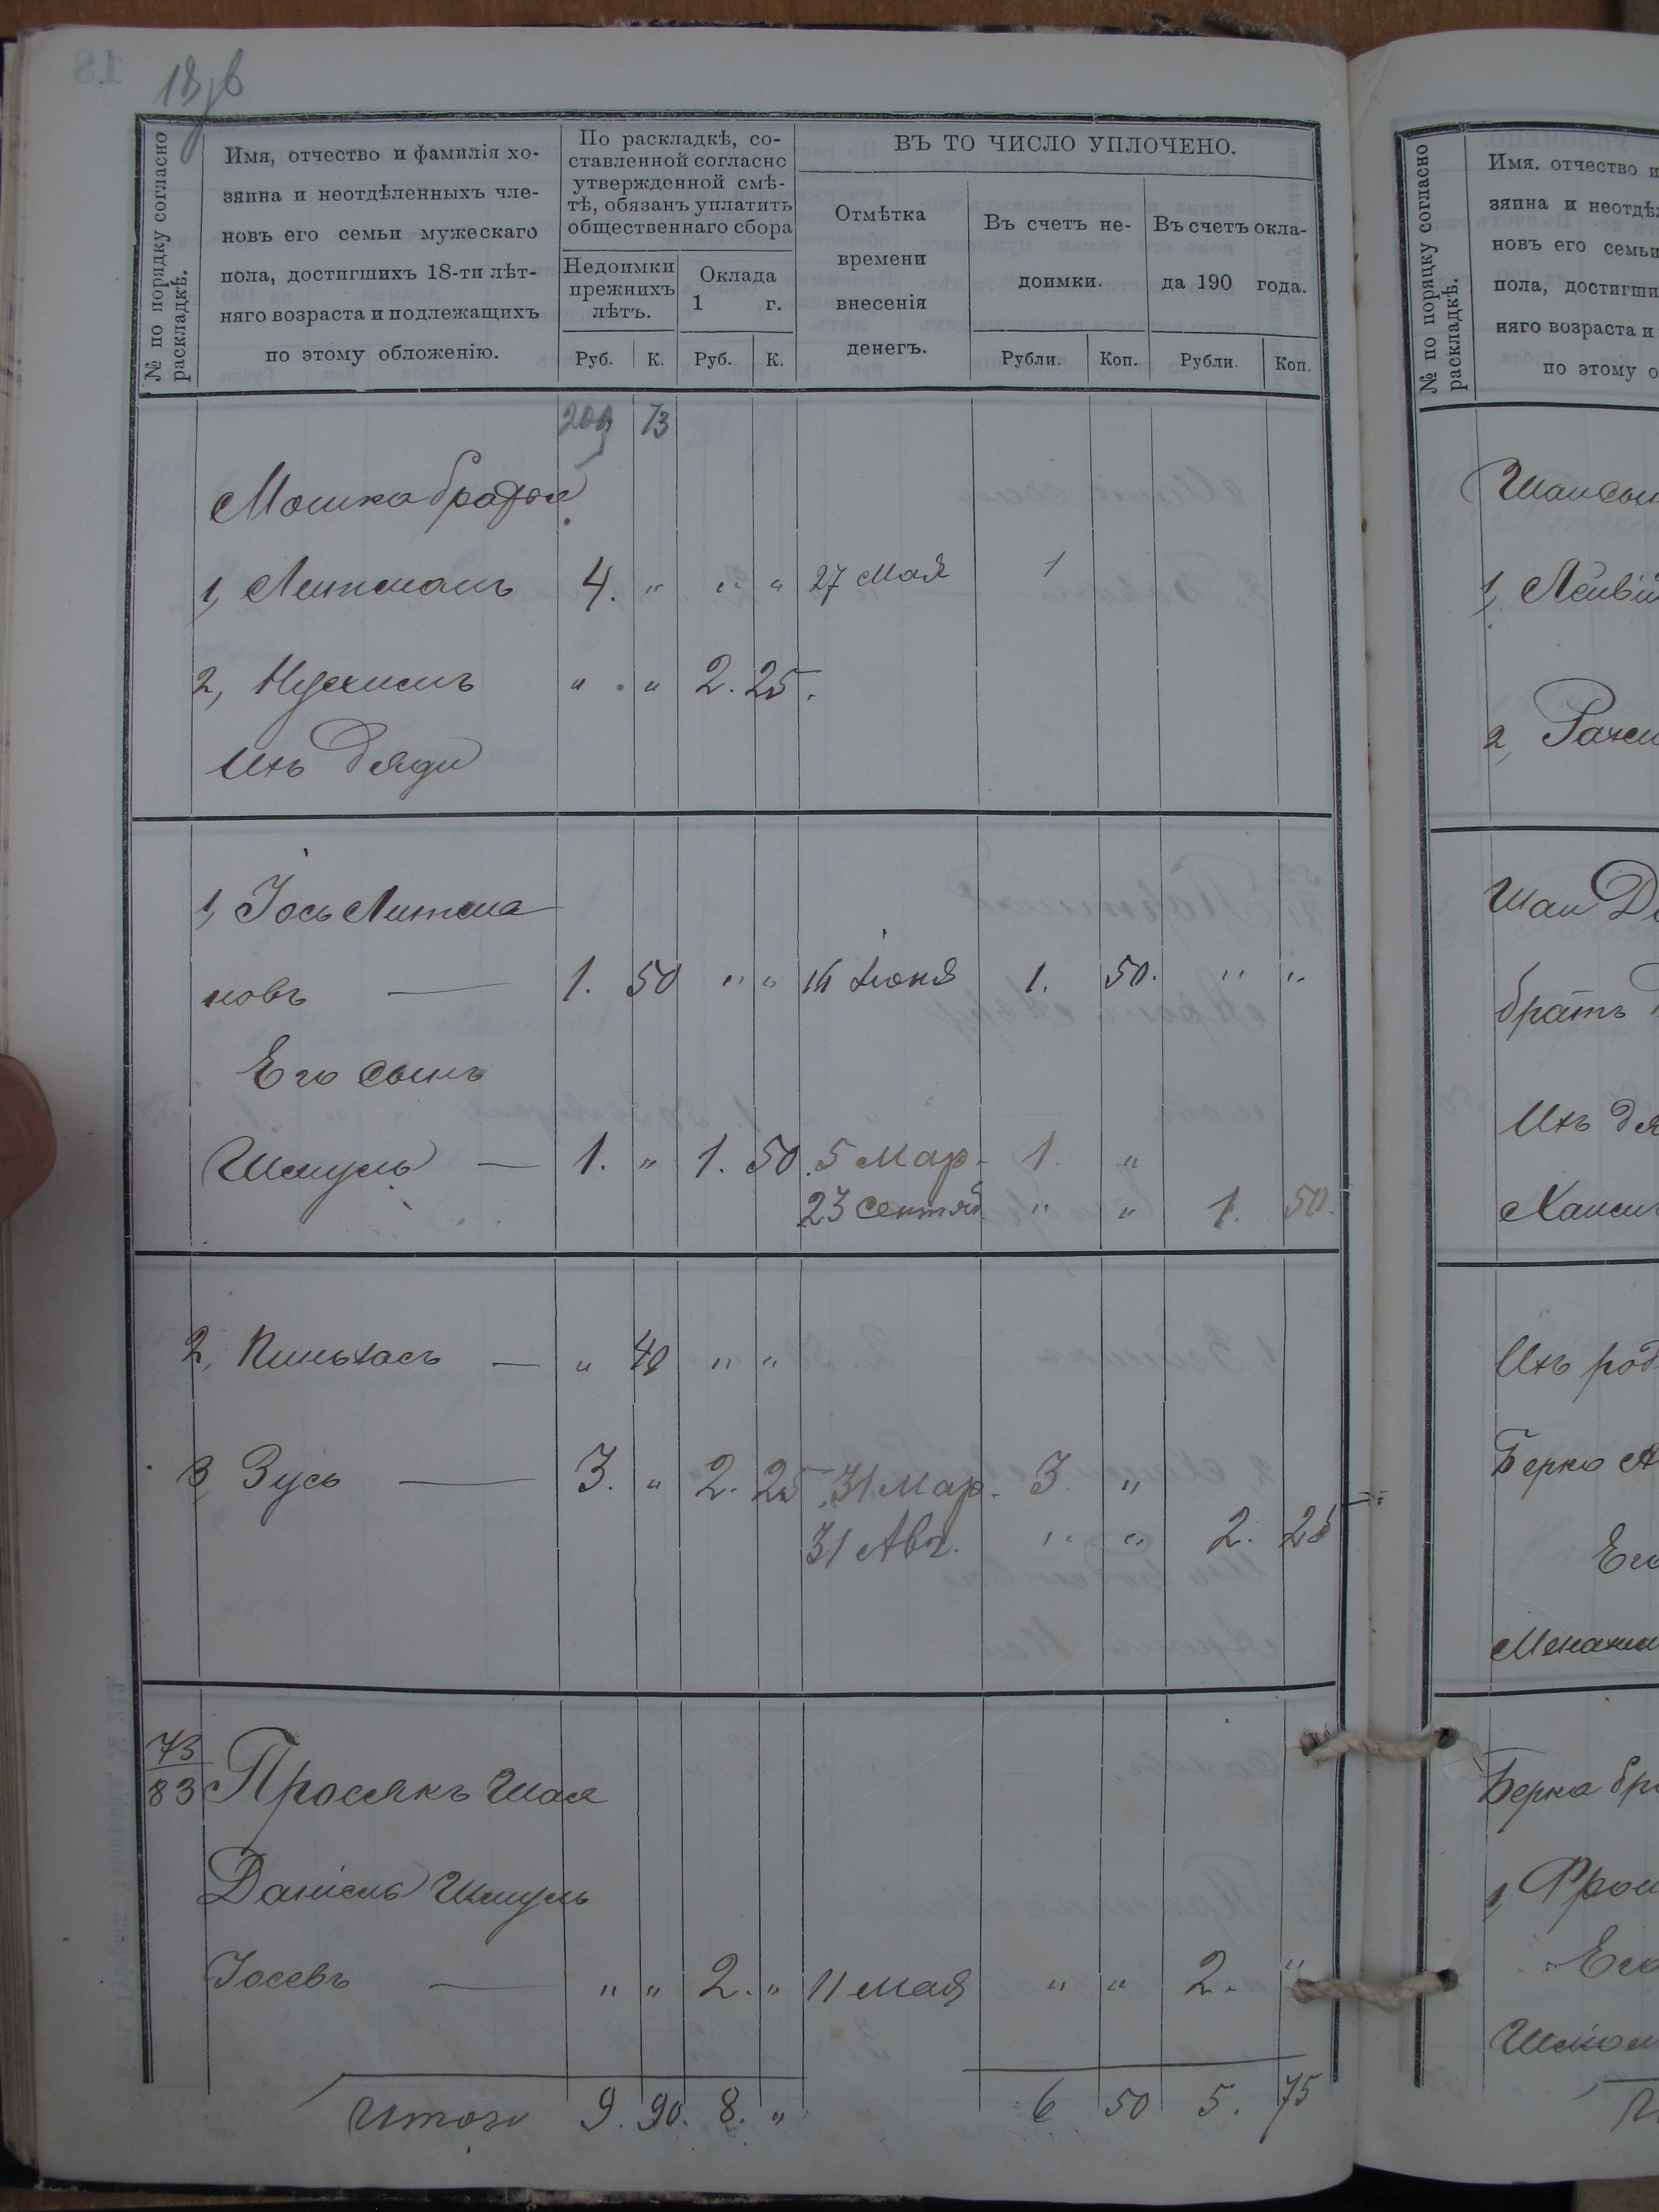 18
№ по порядку согласно раскладкѣ.
Имя, отчество и фамилія хо-
зяина и неотдѣленныхъ чле-
новъ его семьи мужескаго
пола, достигшихъ 18-ти лѣт-
няго возраста и подлежащихъ
по этому обложенію.
По раскладкѣ, со-
ставленной согласно
утвержденной смѣ-
тѣ, обязанъ уплатить
общественнаго сбора
Недоимки
прежнихъ
лѣтъ.
Оклада
1 г.
Руб. К. Руб. К.
ВЪ ТО ЧИСЛО УПЛОЧЕНО.
Отмѣтка
времени
внесенія
денегъ.
Въ счетъ не-
доимки.
Въ счетъ окла-
да 190 года.
Рубли. Коп. Рубли. Коп.
73
Мошка братья
1, Литманъ 4. " " " 27 Мая 1
2, Нусхимъ " " 2. 25.
Ихъ дяди
1, Іось Литма
новъ — 1. 50 " " 16 Іюня 1. 50. " "
Его сынъ
Шмуль — 1. " 1. 50. 5 Мар. 1. "
23 Сентяб. " " 1. 50.
2, Пинхасъ — " 40 " "
3, Зусь — 3. " 2. 25. 31 Мар. 3. "
31 Авг. " " 2. 25
73
83 Просякъ Шая
Даніель Шмуль
Іосевъ — " " 2. " 11 мая " " 2. "
Итого 9. 90. 8. " 6 50 5. 75
№ по порядку согласно раскладкѣ.
Имя. отчество и
зяина и неотдѣ
новъ его семьи
пола, достигши
няго возраста и
по этому о
1,
2,
Шаи
братъ
Ихъ дя
Ихъ род
Берко А
Его
Берка бра
1, Фрои
Его